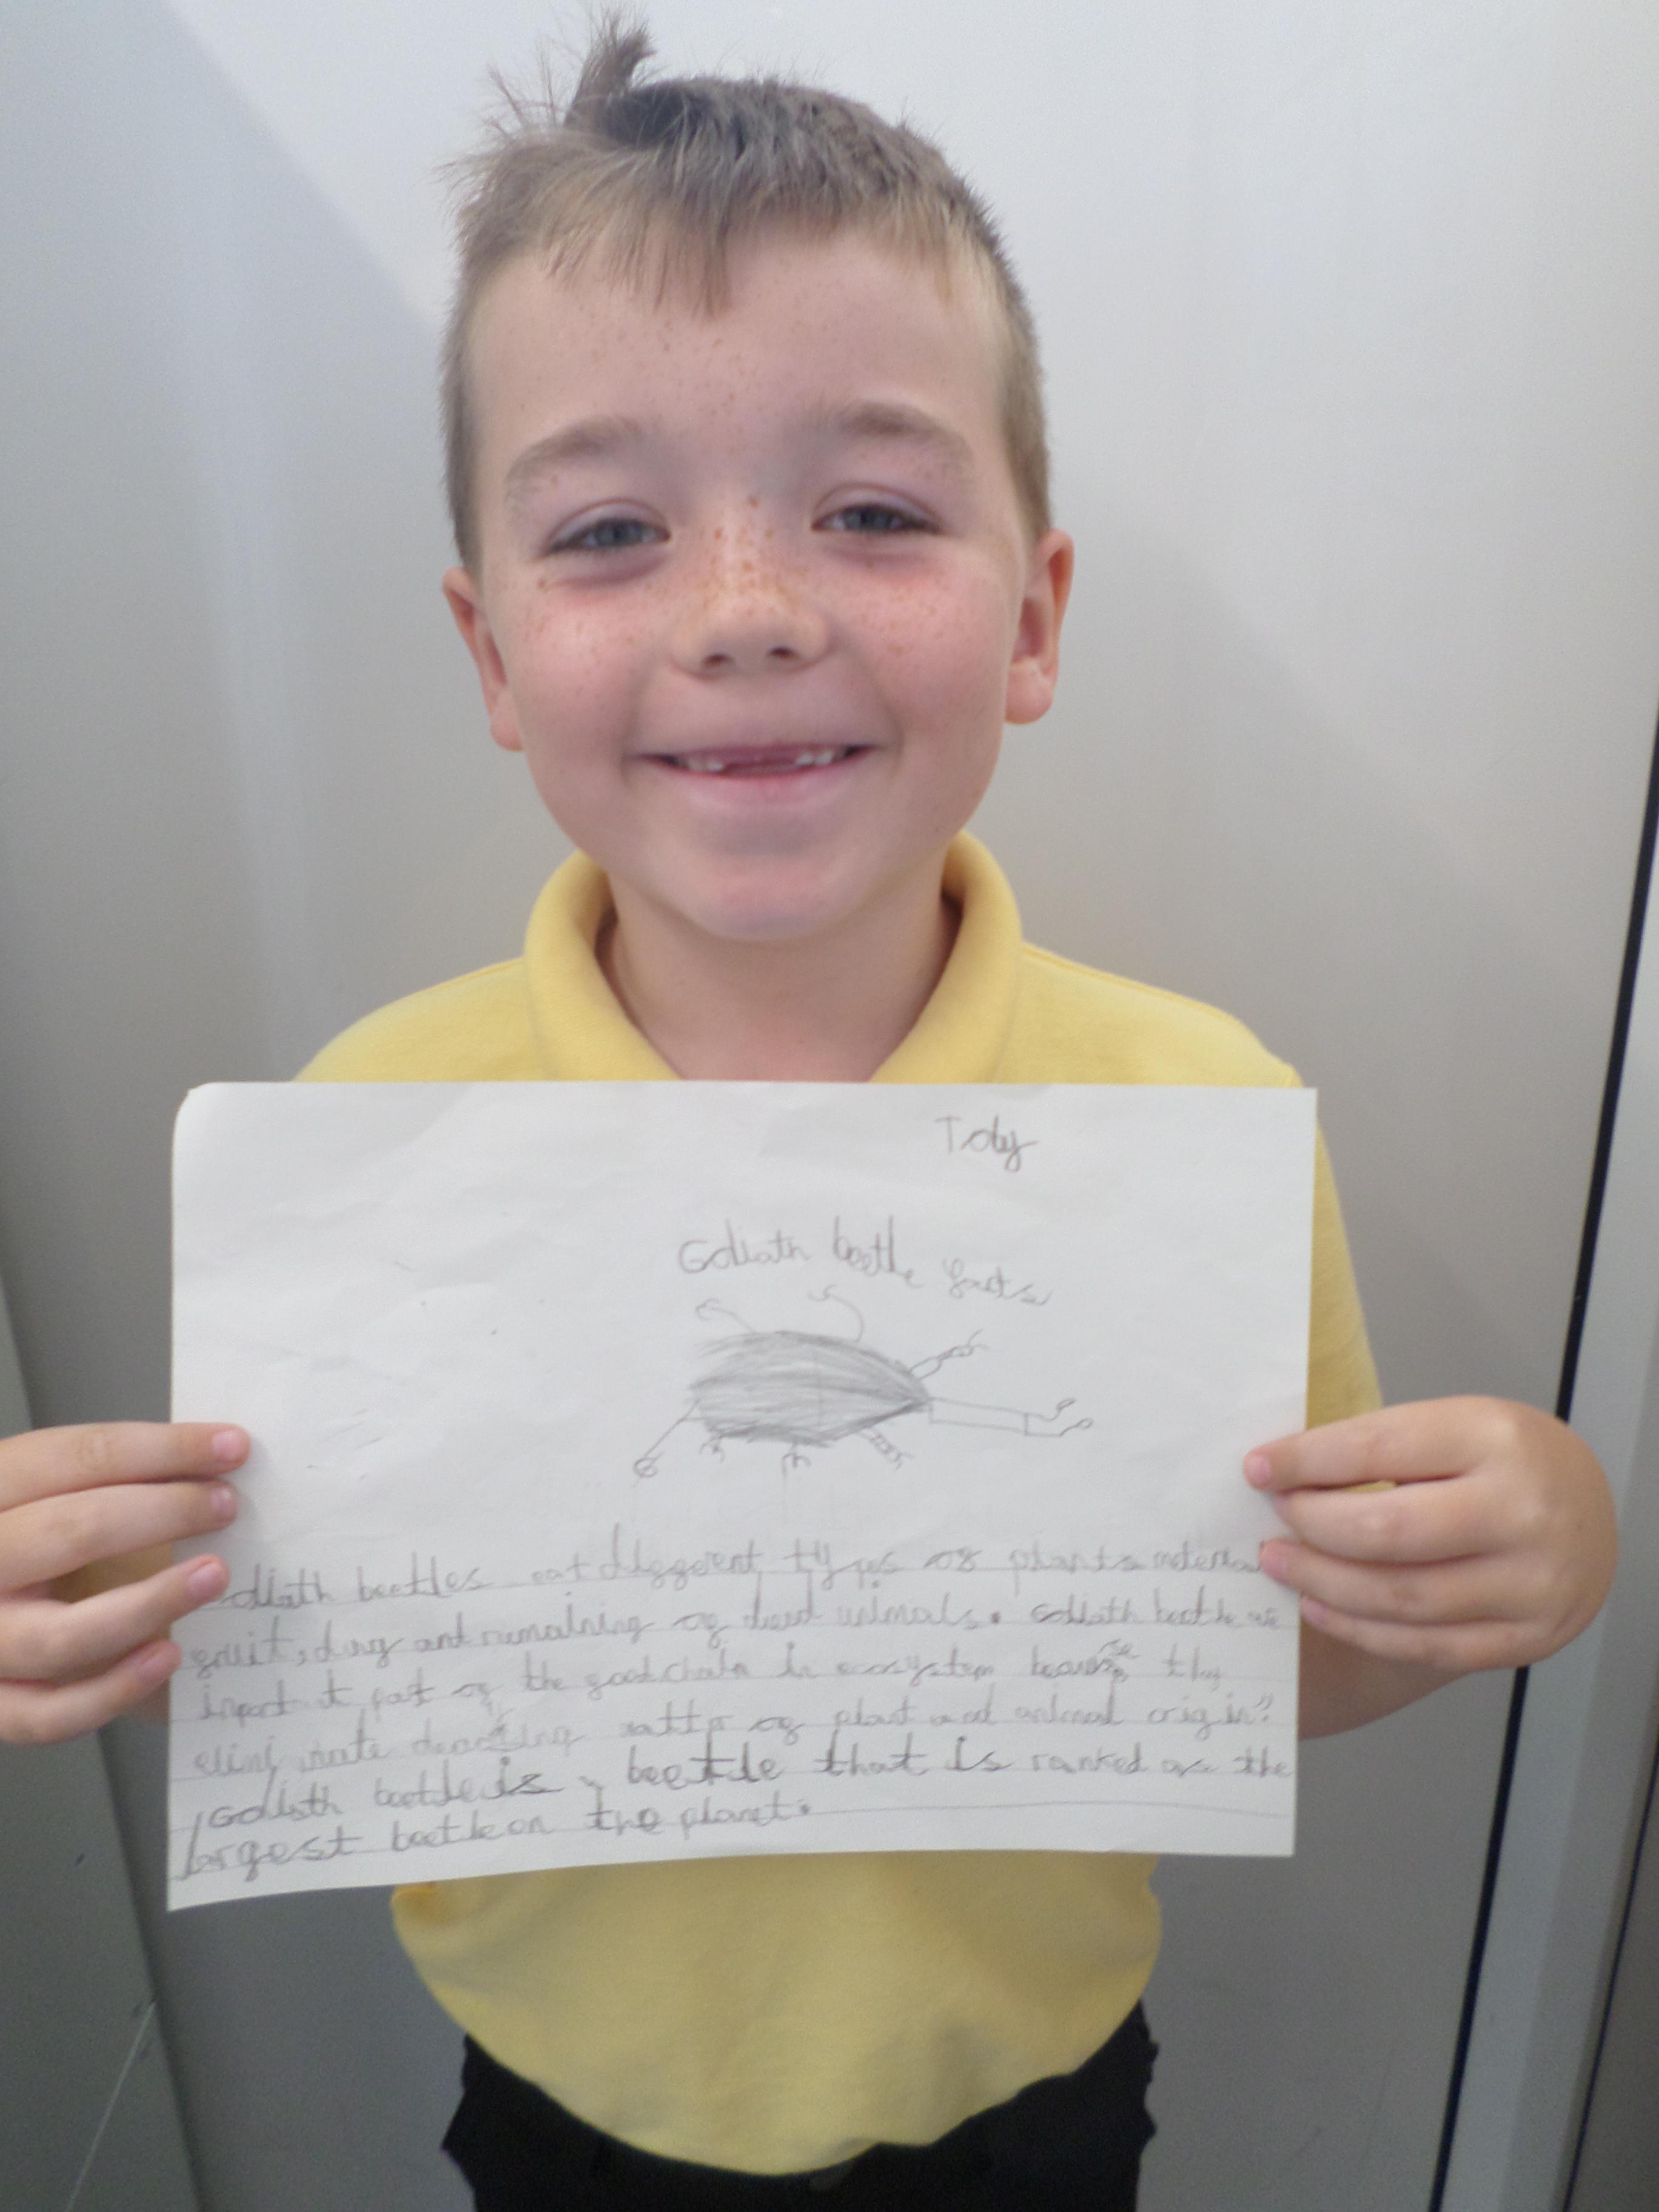 Toby
Goliath beetle facts
oliath beetles eat different types of plants material
fruit, dung and remaining of dead animals. Goliath beetle are
import t part of the food chain in ecosystem because they
elimi nate deacting matter of plant and animal origin."
Goliath beetle is a beetle that is ranked as the
largest beetle on the planet.